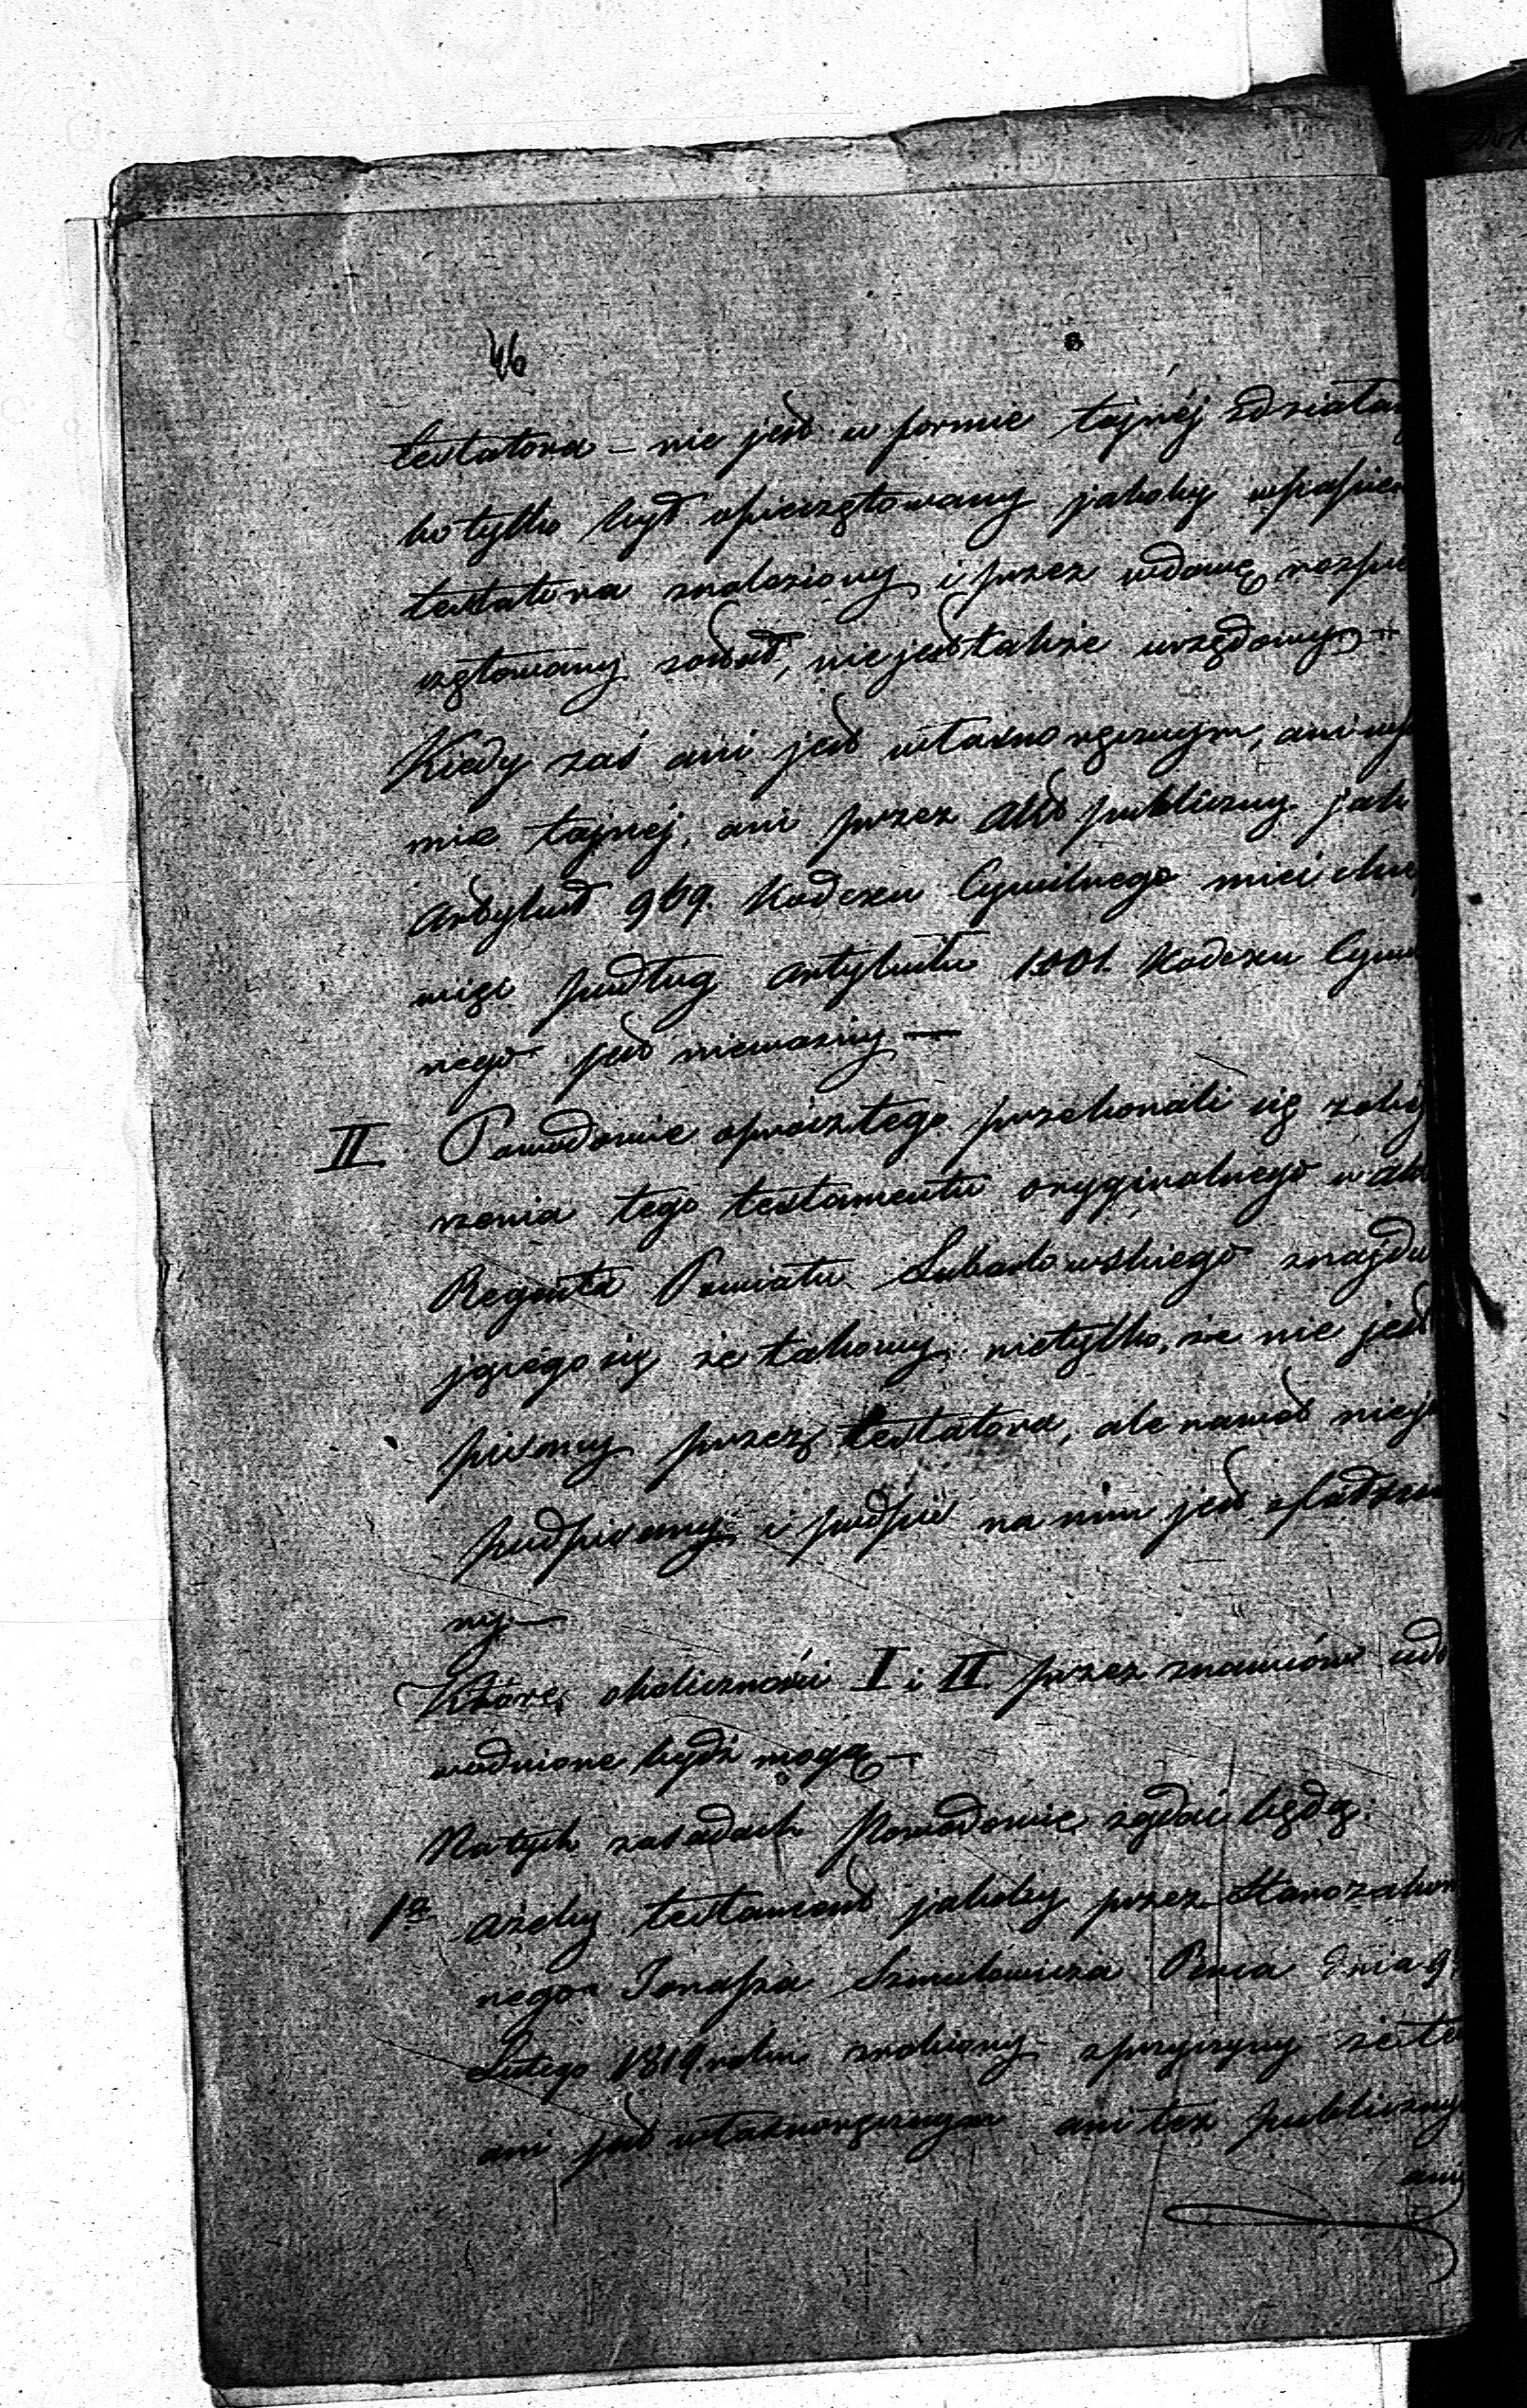 46
testatora – nie jest w formie tajnéj zdziała
bo tylko był opieczętowany jakoby w papier
testatora znaleziony i przez wdowę rozpie
czętowany został, nie jest także urzędowy –
Kiedy zaś ani jest własnoręcznym, ani w
mie tajnéj, ani przez Akt publiczny jak
Artykuł 969. Kodexu Cywilnego mieć chce
więc podług Artykułu 1001. Kodexu Cywil
nego jest nieważny —
II Powodowie oprócz tego przekonali się z
rzenia tego testamentu oryginalnego w Ak
Regenta Powiatu Lubartowskiego znajdu
jącégo się że takowy nietylko, że nie jest
pisany przez testatora, ale nawet nie j
podpisany i podpis na nim jest sfałszow
ny. —
Któré okoliczności I i II. przez znawców udo
wodnione bydź mogą –
Na tych zasadach Powodowie żądać będą:
1º Ażeby testament jakoby przez Starozakon
nego Jonasza Szmulowicza dnia 9
Lutego 1819 roku zrobiony z przyczyny że te
ani jest własnoręcznym ani też publiczny
ani